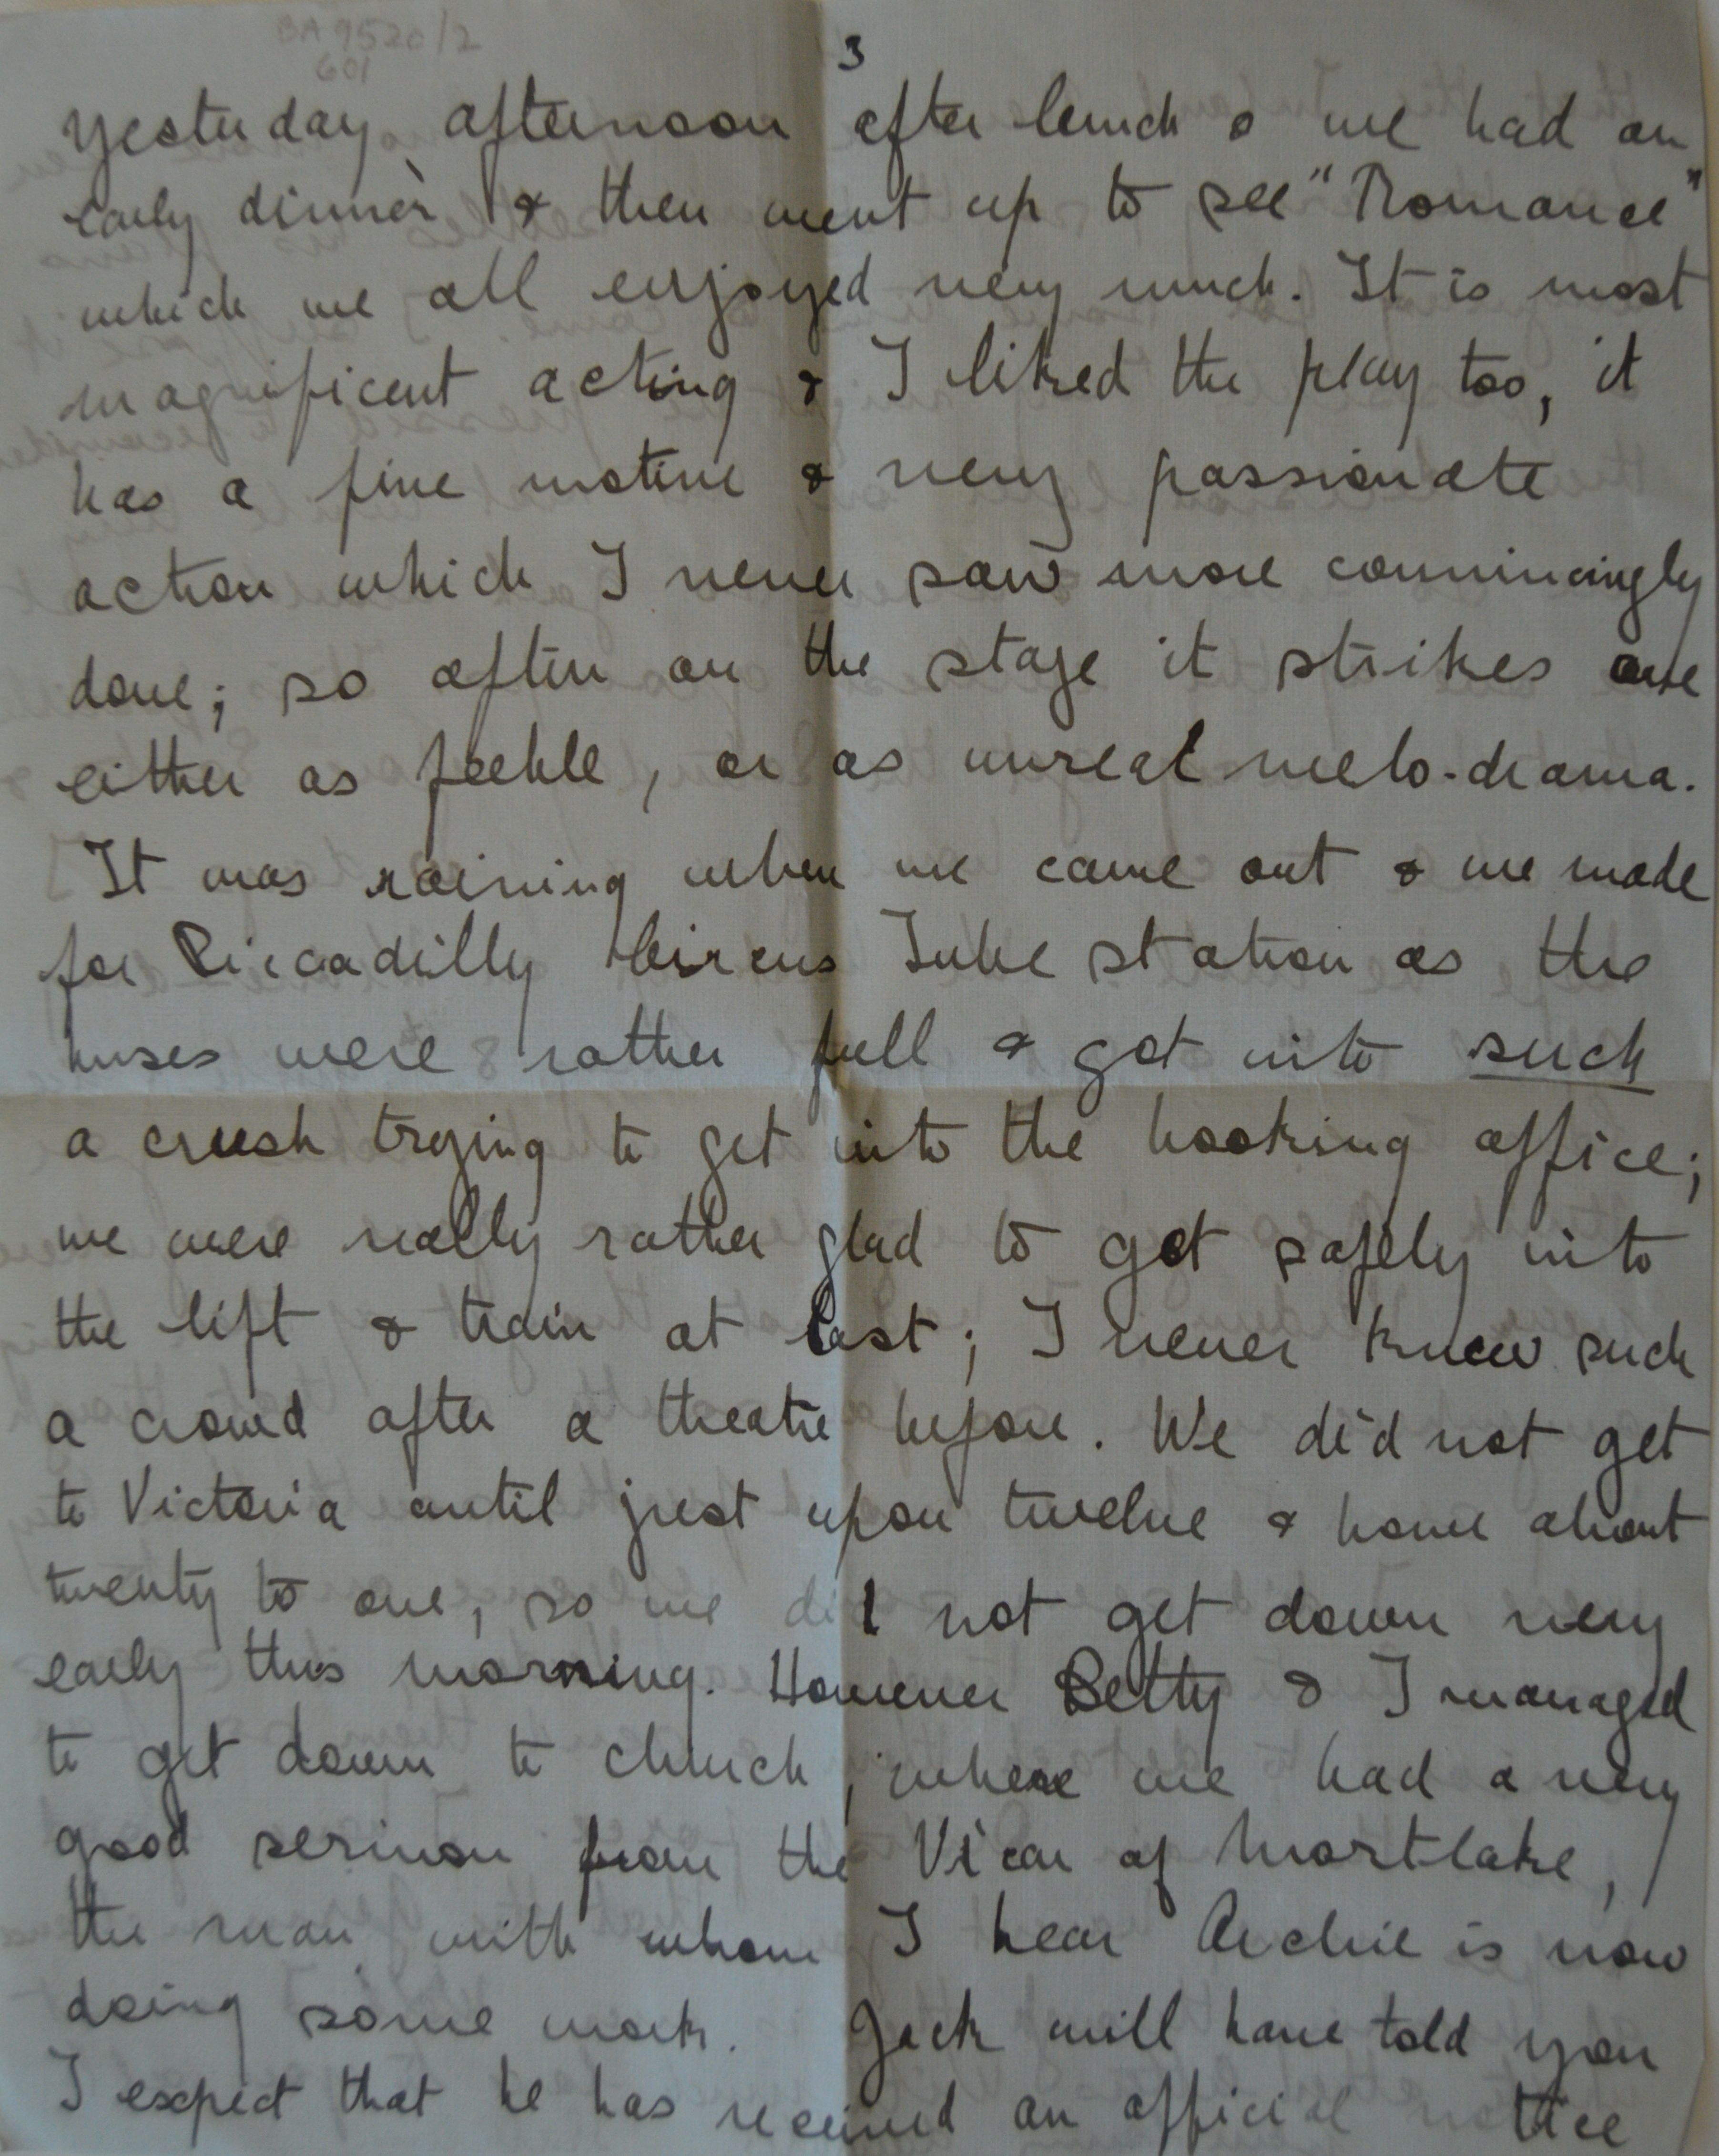 BA9520/2
601
3
yesterday afternoon after lunch & we had an
early dinner & then went up to see "Romance"
which we all enjoyed very much. It is most
magnificent acting & I liked the play too, it
has a fine motive & very passionate
action which I never saw more convincingly
done; so often on the stage it strikes one
either as feeble, or as unreal melo-drama.
It was raining when we came out & we made
for Piccadilly Circus Tube station as the
buses were rather full & got into such
a crush trying to get into the booking office;
we were really rather glad to get safely into
the lift & train at last; I never knew such
a crowd after a theatre before. We did not get
to Victoria until just upon twelve & home about
twenty to one, so we did not get down very
early this morning. However Betty & I managed
to get down to church, where we had a very
good sermon from the Vicar of Mortlake,
the man with whom I hear Archie is now
doing some work. Jack will have told you
I expect that he has received an official notice